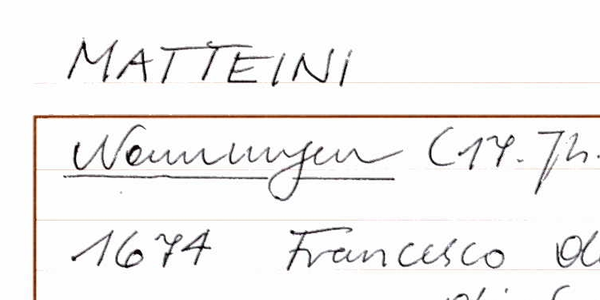 MATTEINI
Nennungen (17. Jh.
1674 Francesco di